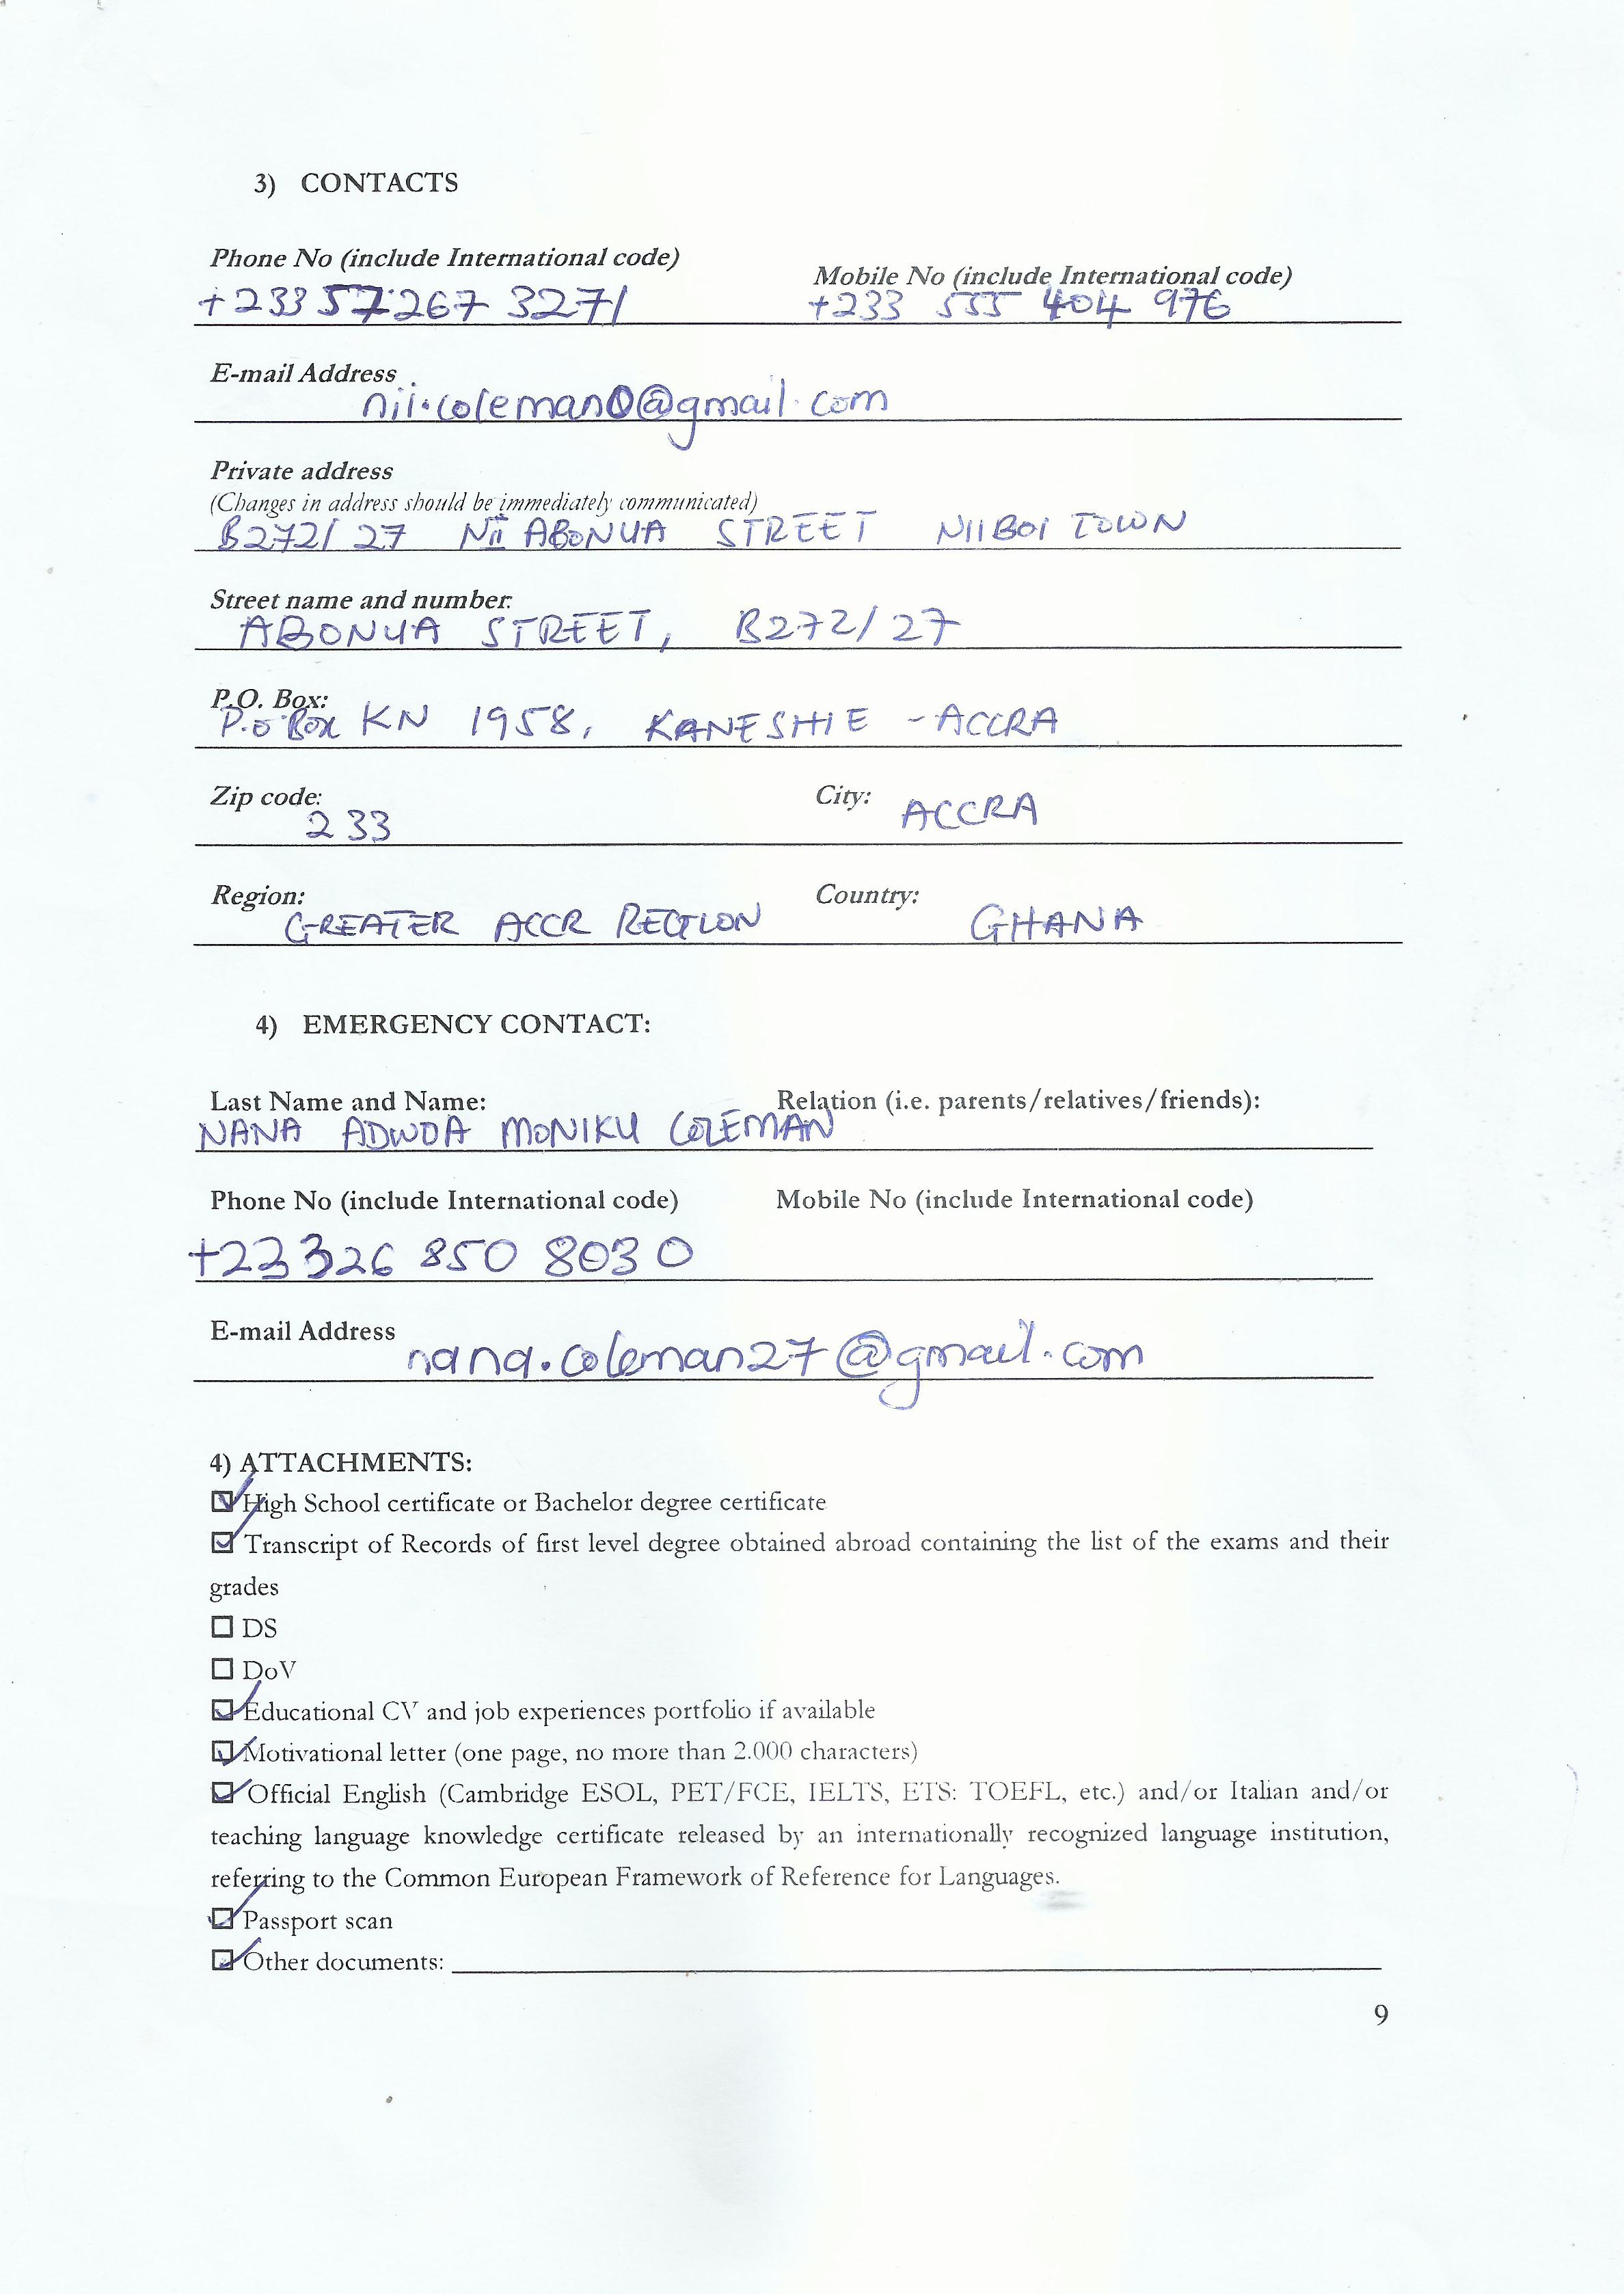 3) CONTACTS
Phone No (include International code)
Mobile No (include International code)
+233 57 267 3271
+233 555 404 976
E-mail Address
nii.coleman0@gmail.com
Private address
(Changes in address should be immediately communicated)
B272/27 Nii ABONUA STREET NIIBOI TOWN
Street name and number:
ABONUA STREET, B272/27
P.O. Box:
P.O Box KN 1958, KANESHIE - ACCRA
Zip code: City: ACCRA
233
Region: Country:
GREATER ACCR REGION GHANA
4) EMERGENCY CONTACT:
Last Name and Name: Relation (i.e. parents/relatives/friends):
NANA ADWOA MONIKU COLEMAN
Phone No (include International code) Mobile No (include International code)
+233 26 850 8030
E-mail Address nana.coleman27@gmail.com
4) ATTACHMENTS:
High School certificate or Bachelor degree certificate
Transcript of Records of first level degree obtained abroad containing the list of the exams and their
grades
DS
DoV
Educational CV and job experiences portfolio if available
Motivational letter (one page, no more than 2.000 characters)
Official English (Cambridge ESOL, PET/FCE, IELTS, ETS: TOEFL, etc.) and/or Italian and/or
teaching language knowledge certificate released by an internationally recognized language institution,
referring to the Common European Framework of Reference for Languages.
Passport scan
Other documents:
9